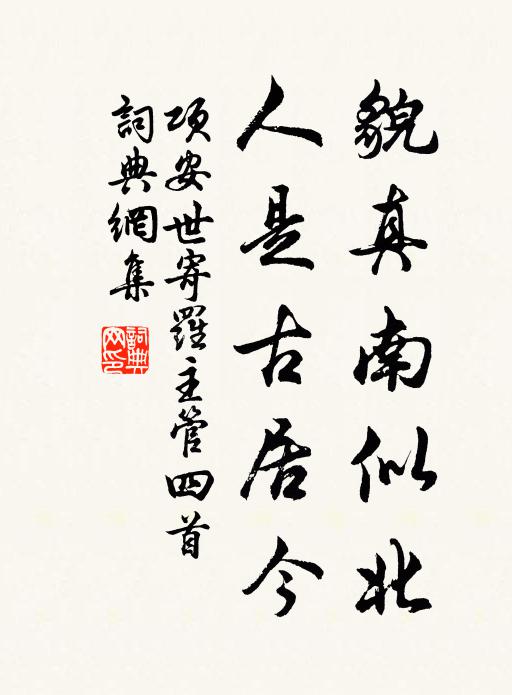 貌真南似北
人是古居今
項安世寄羅主管四首
詞典網集
詞典網印